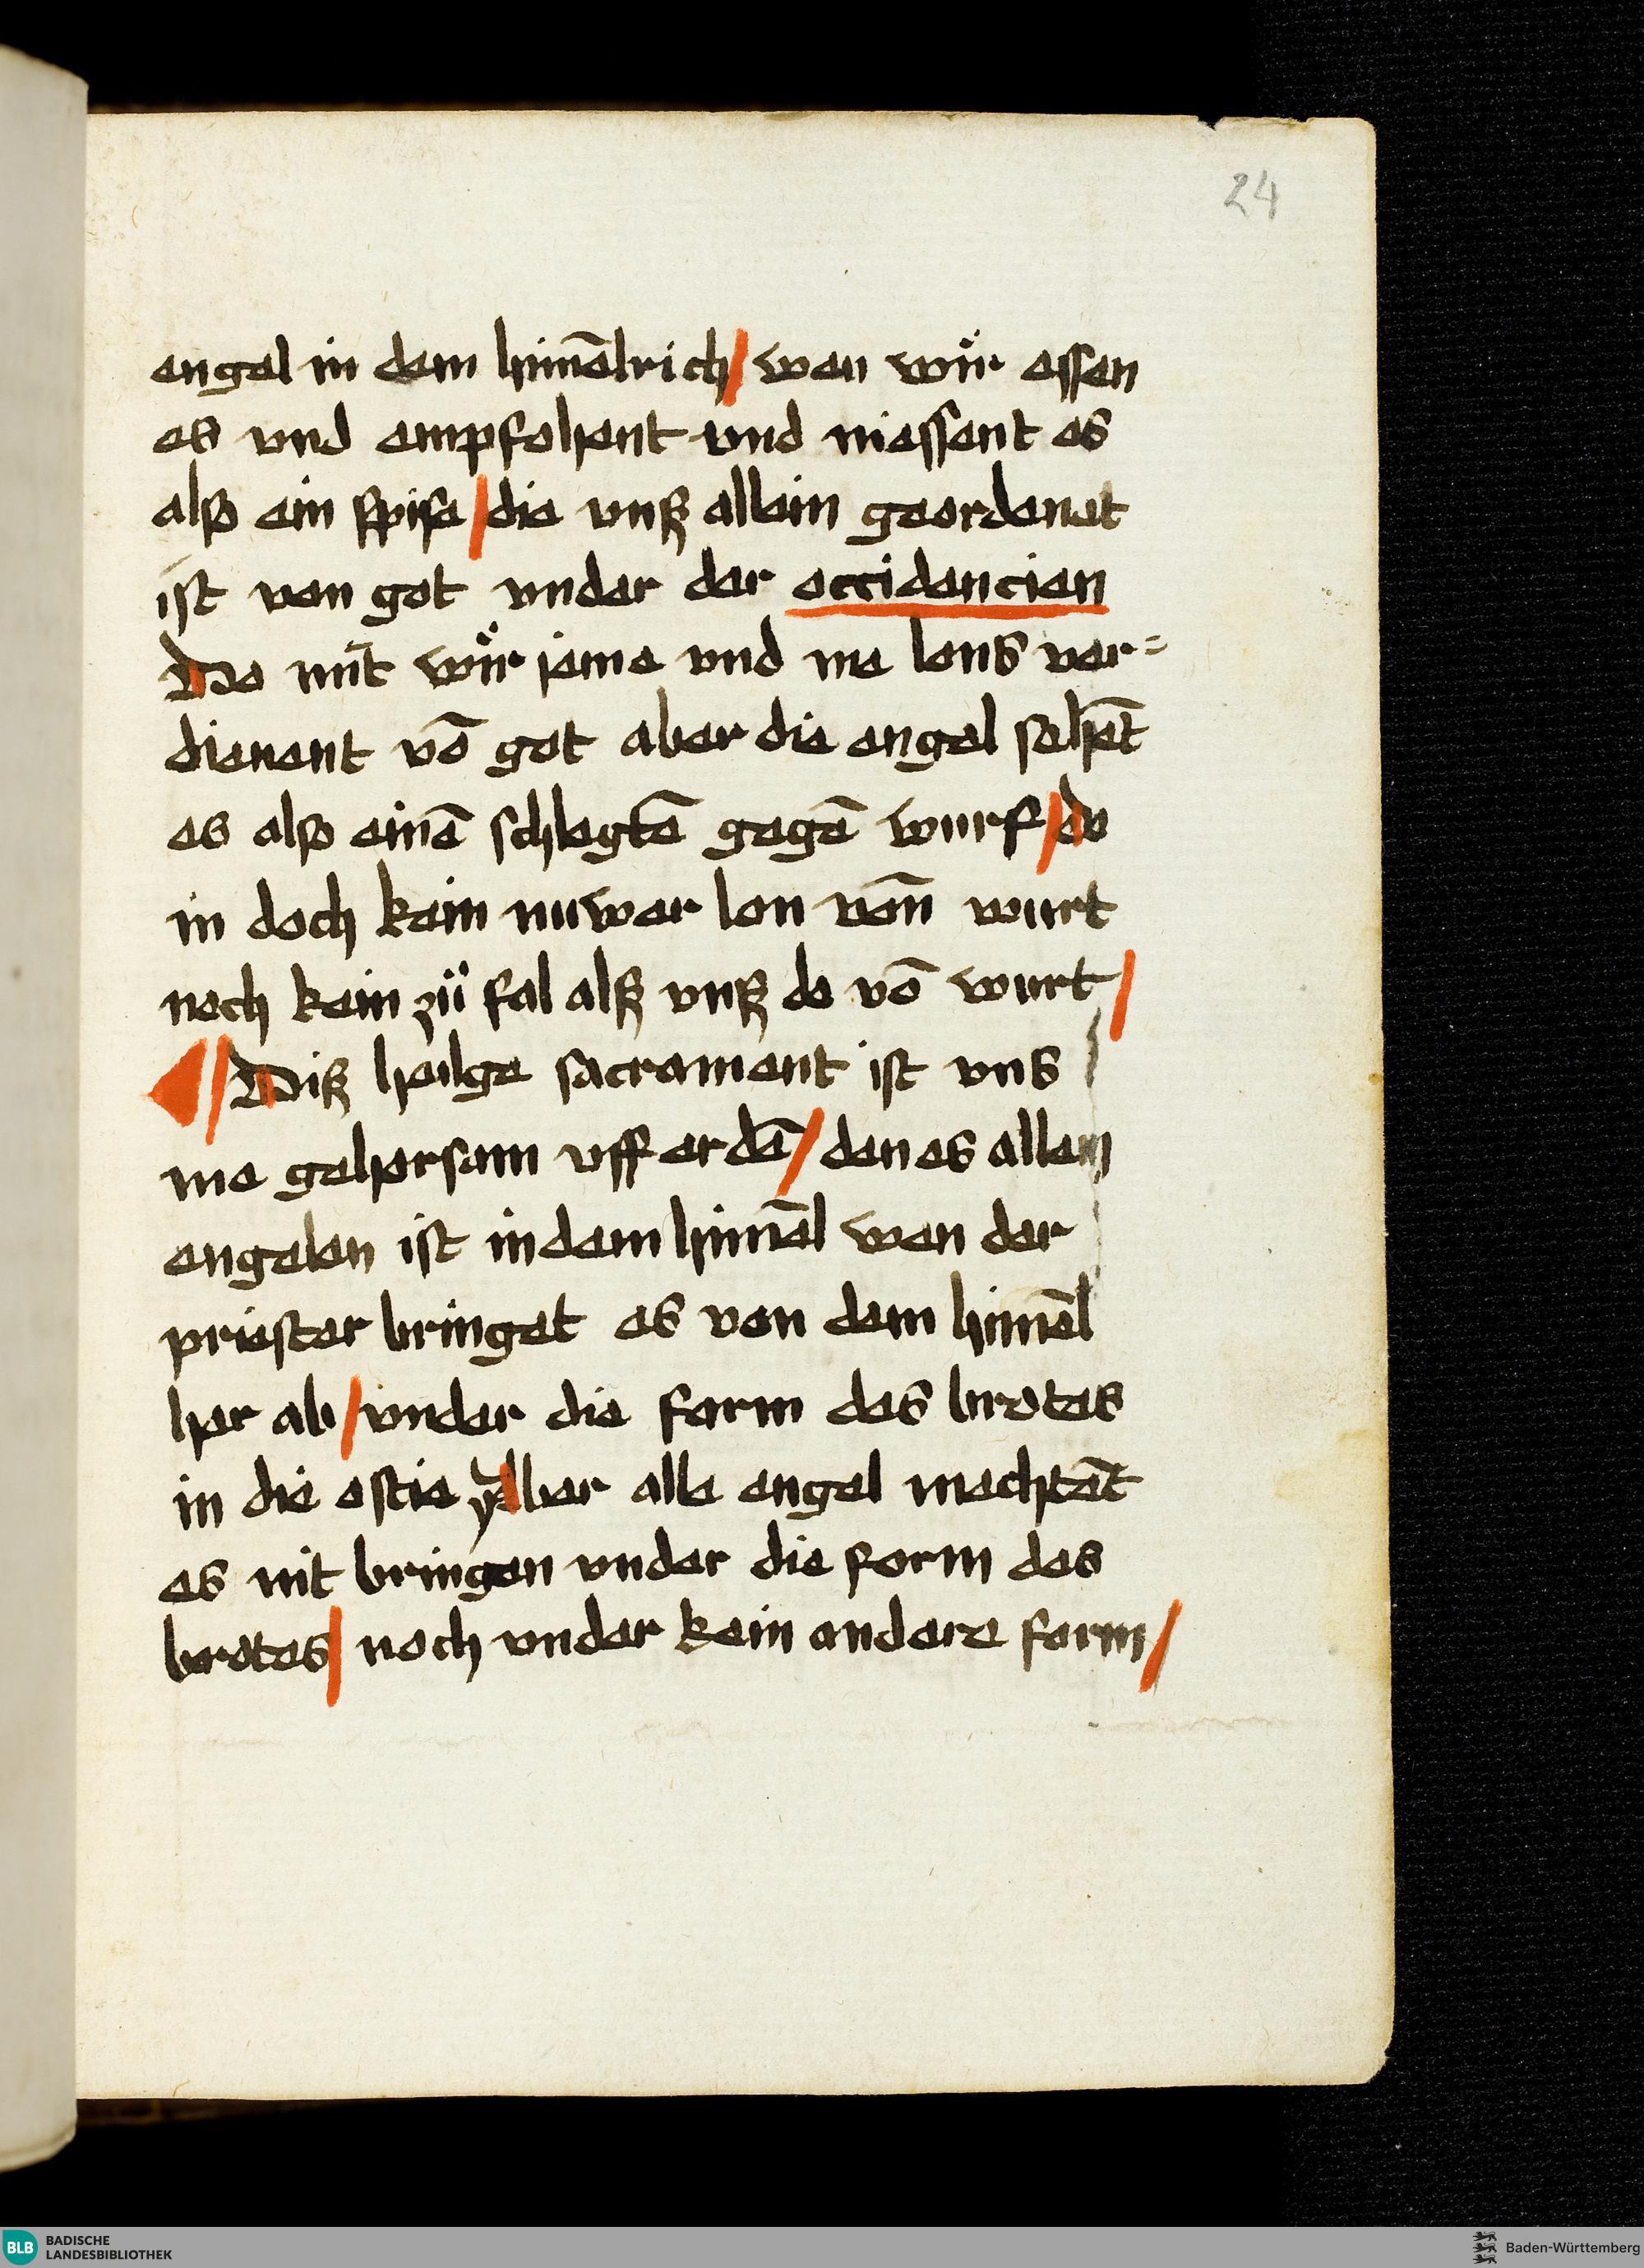 24
engel in dem himēlrich / wan wür essen
es vnd empfohent vnd niessent es
also ein spise / die vnß allein geordenet
ist von got vnder der accidencien
Do mit wür ieme vnd me lons ver=
dienent vō got aber die engel sehēt
es also einē schlegtē gegē wurf / do
in doch kein nuwer lon vōn wurt
noch kein zü fal alß vnß do vō wurt /
Diß heilge sacrament ist vns
me gehorsam vff erdē / den es allen
engelen ist in dem himēl wan der
priester bringet es von dem himēl
her ab / vnder die form des brotes
in die ostie aber alle engel mechtēt
es nit bringen vnder die form des
brotes / noch vnder kein andere form /
BLB BADISCHE
LANDESBIBLIOTHEK
Baden-Württemberg